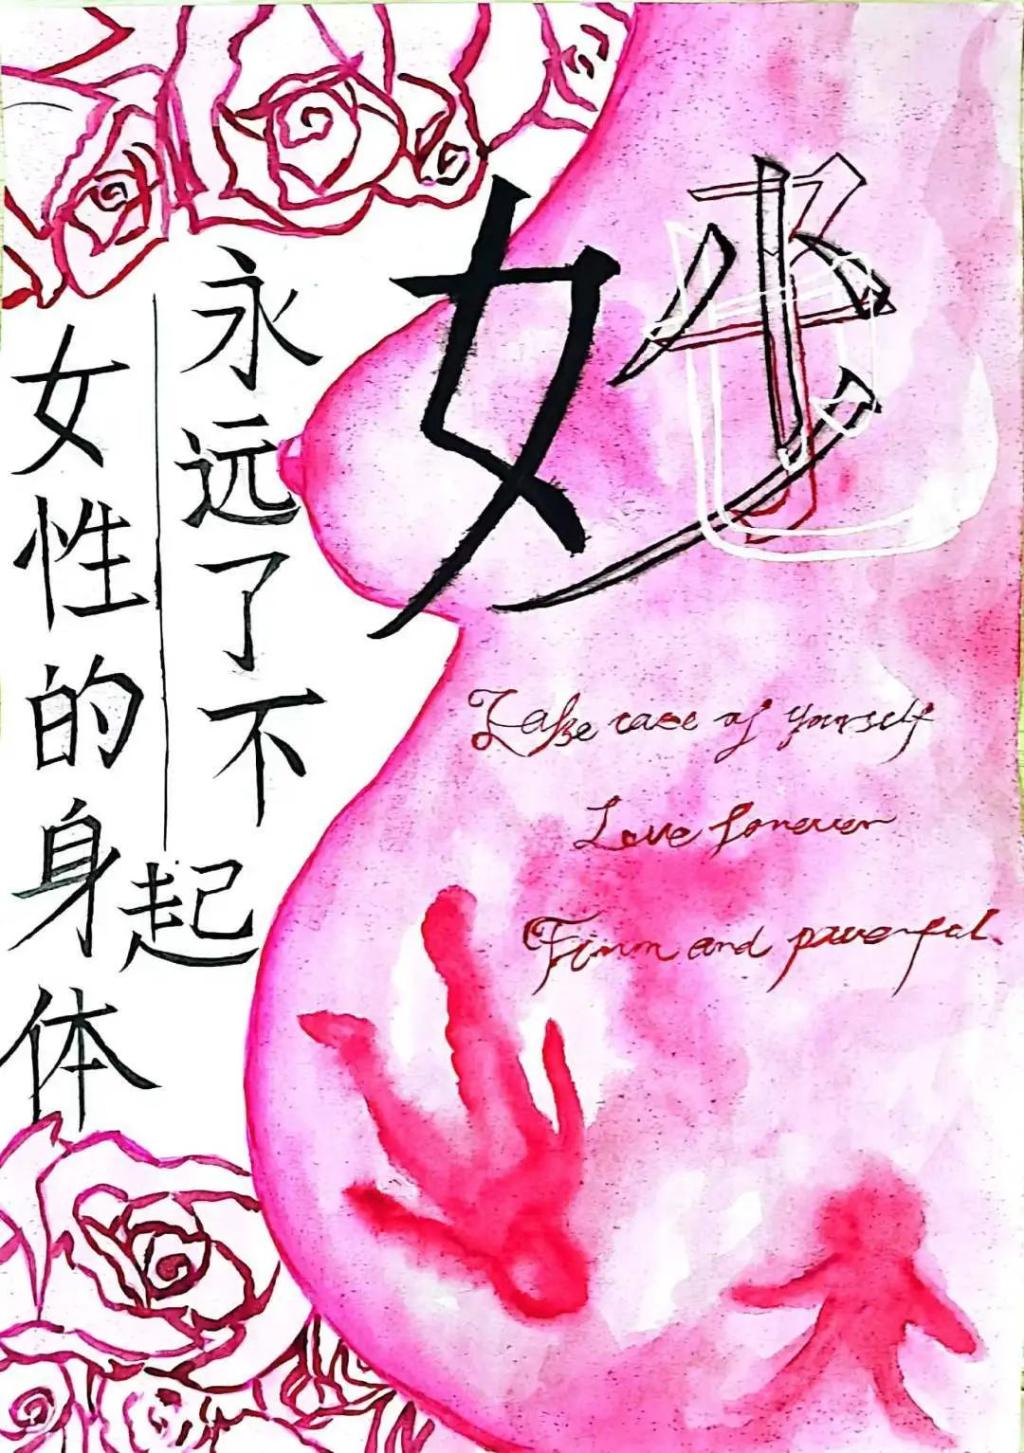 妙
女性的身体
永远了不起
Take care of yourself
Love forever
Firm and powerful.